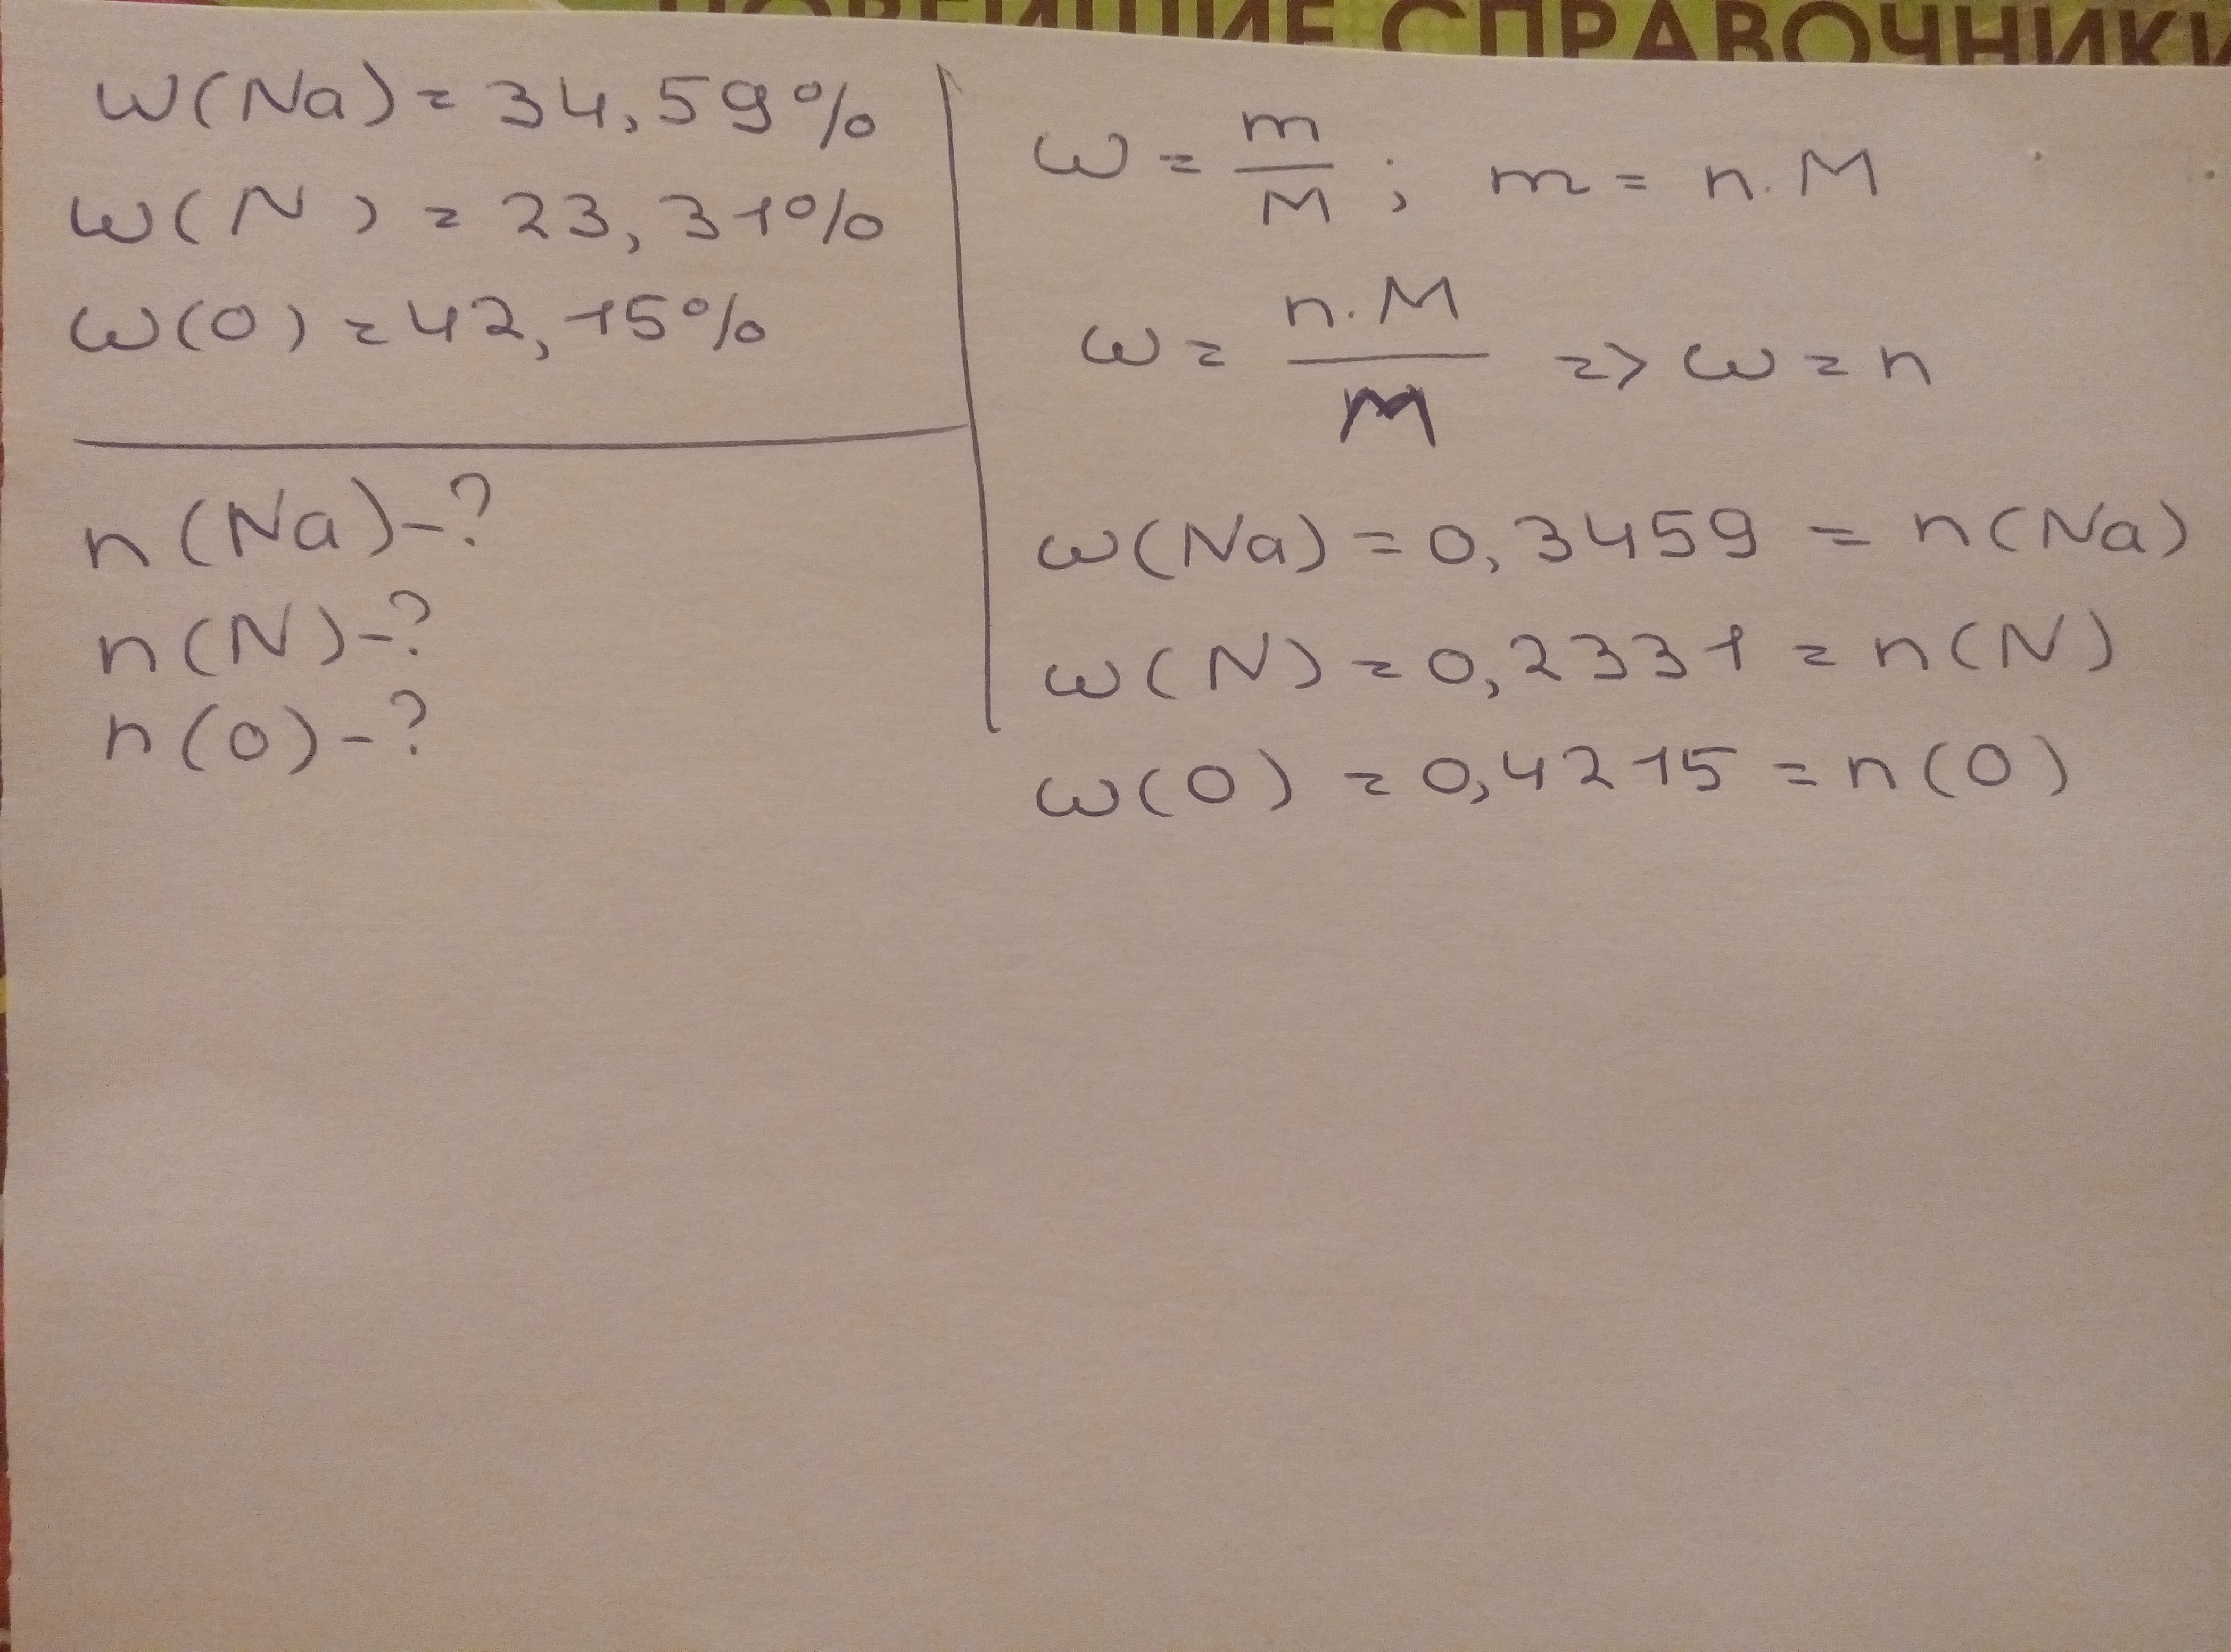 НОВЕЙШИЕ СПРАВОЧНИКИ
w(Na) = 34,59%
w(N) = 23,31%
w(O) = 42,15%
n(Na)-?
n(N)-?
n(O)-?
ω = m/M ; m = n·M
ω = n·M/M => ω = n
ω(Na) = 0,3459 = n(Na)
ω(N) = 0,2331 = n(N)
ω(O) = 0,4215 = n(O)